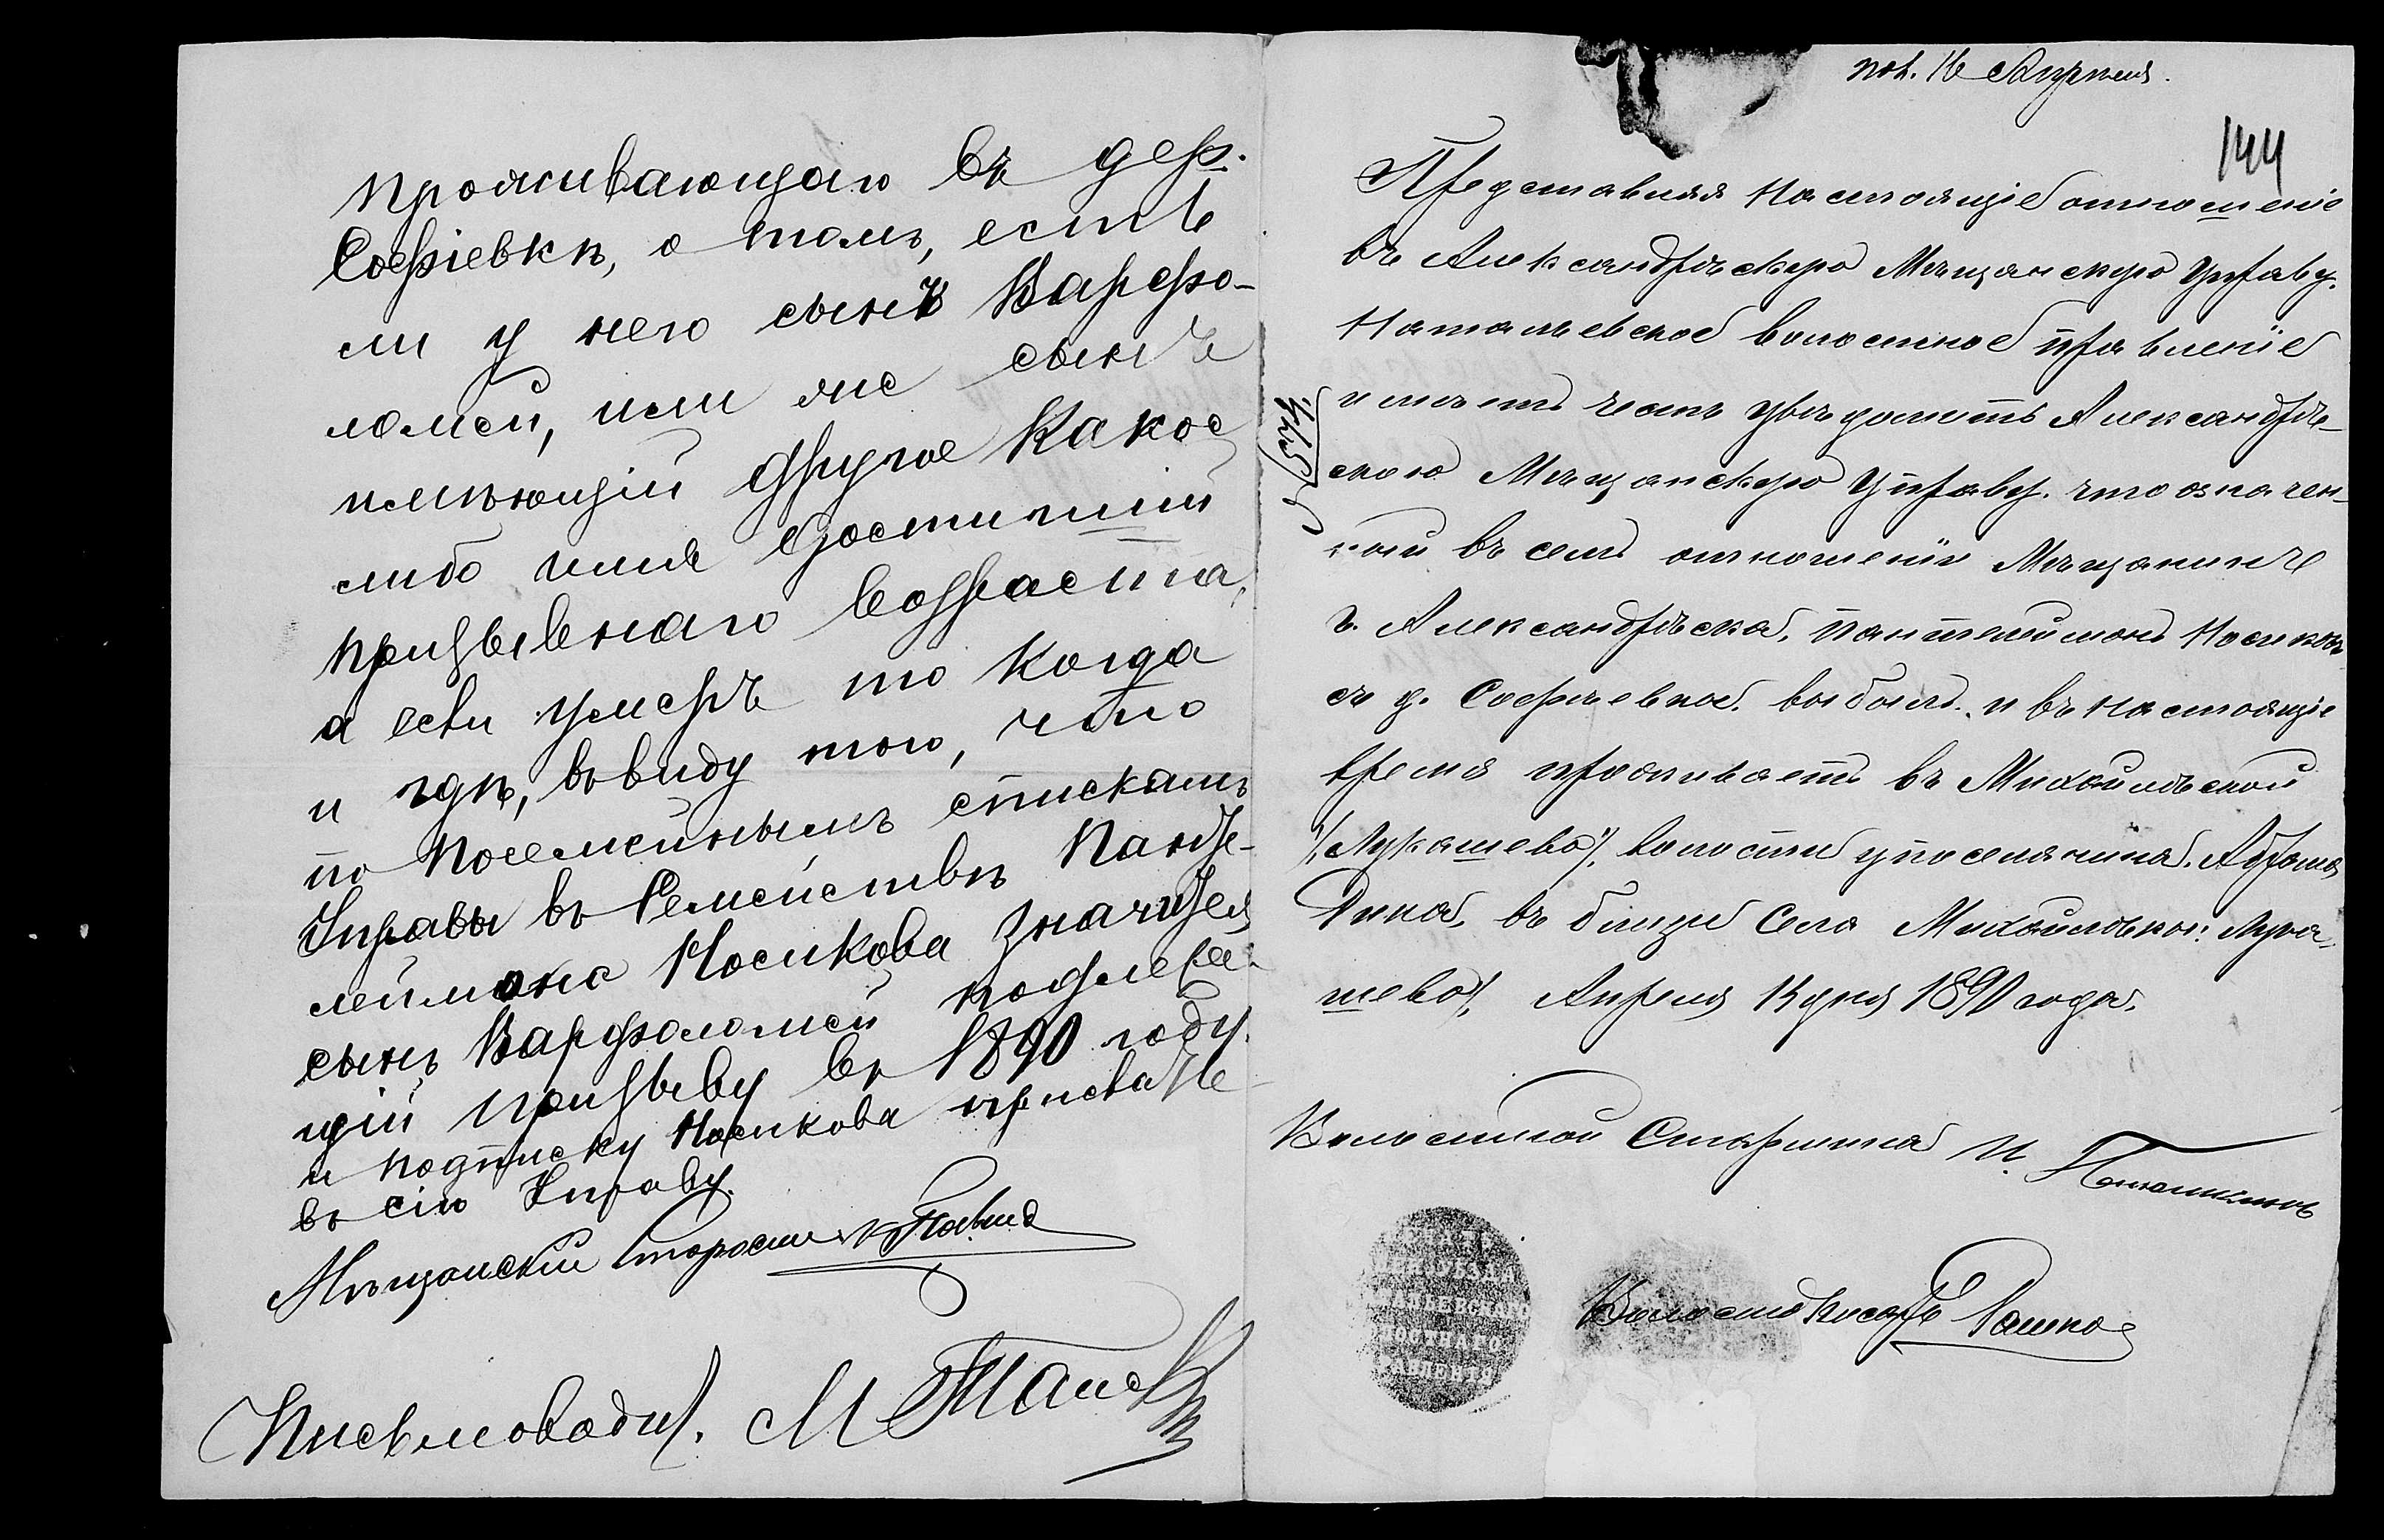 проживающаго въ дер.
Софіевкѣ, о томъ, есть
ли у него сынъ Варфо-
ломей, или же сынъ
имѣющій другое какое
либо имя достигшій
призывнаго возраста,
а если умеръ то когда
и гдѣ, въ виду того, что
по посемейнымъ спискамъ
Управы въ семействѣ Панте-
леймона Носикова значится
сынъ Варфоломей подлежа-
щій призыву въ 1890 году
и подписку Носикова
въ сію Управу.
Мѣщанскій Староста
Письмоводит. М
пол. 16 Апрѣля.
144
Представляя настоящіе отношеніе
въ Александрьскую Мѣщанскую Управу.
Натальевское волостное правленіе
имѣетъ честь увѣдомить Александрь-
скою Мѣщанскую Управу. что означен-
ной въ семъ отношеніи Мѣщанинъ
г. Александрьска, Пантелеймонъ Носиковъ
съ д. Софіевкой выбылъ и въ настоящіе
время проживаетъ въ Михайловской
"/Лукашево/" волости у поселянина. Абрама
Дика, въ близи Села Михайловкой: Лука-
шево/, Апреля 14 дня 1890 года.
Волостной Старшина И.
Волостно Писарь Рашко